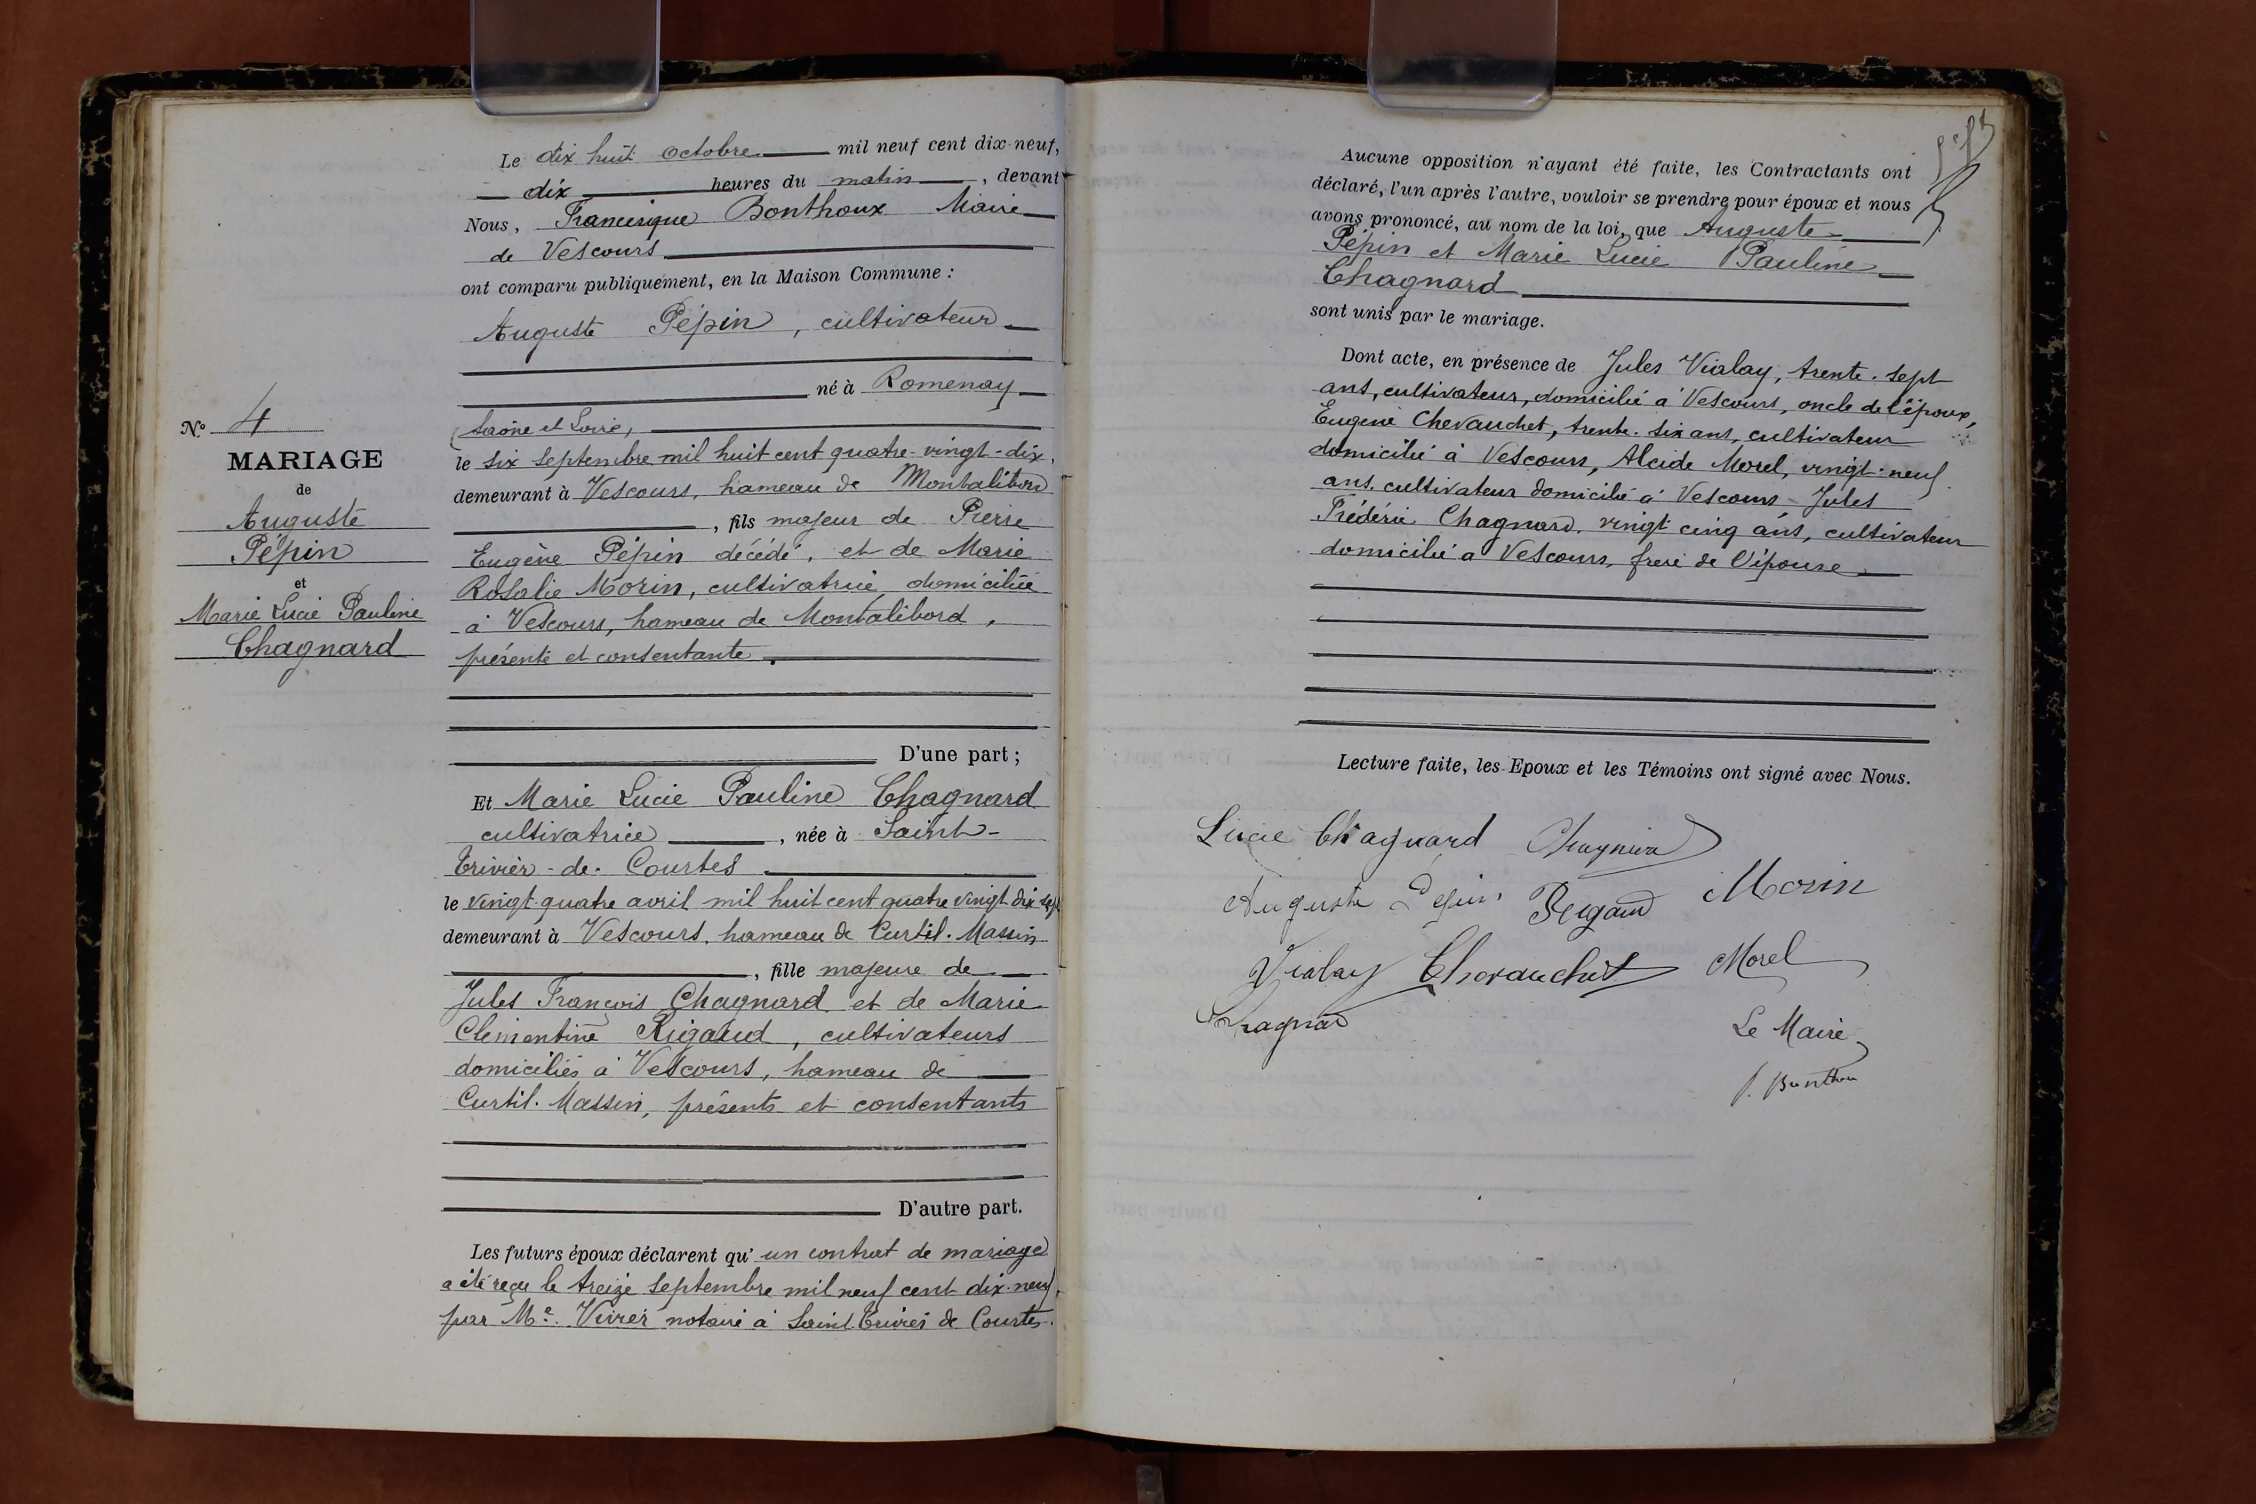 N° 4
MARIAGE
de
Auguste
Pépin
et
Marie Lucie Pauline
Chagnard
Le dix huit octobre mil neuf cent dix-neuf,
dix heures du matin, devant
Nous, Francisque Bonthoux Maire
de Vescours
ont comparu publiquement, en la Maison Commune :
Auguste Pépin, cultivateur
né à Romenay
(Saône et Loire,
le six septembre mil huit cent quatre-vingt-dix,
demeurant à Vescours, hameau de Montalibord
, fils majeur de Pierre
Eugène Pépin décédé, et de Marie
Rosalie Morin, cultivatrice domiciliée
à Vescours, hameau de Montalibord,
présente et consentante.
D'une part ;
Et Marie Lucie Pauline Chagnard
cultivatrice, née à Saint-
Trivier-de-Courtes
le vingt-quatre avril mil huit cent quatre vingt dix sept
demeurant à Vescours, hameau de Curtil-Massin
, fille majeure de
Jules François Chagnard et de Marie
Clémentine Rigaud, cultivateurs
domiciliés à Vescours, hameau de
Curtil-Massin, présents et consentants
D'autre part.
Les futurs époux déclarent qu'un contrat de mariage
a été reçu le treize septembre mil neuf cent dix-neuf,
par Me Vivier notaire à Saint Trivier de Courtes.
Aucune opposition n'ayant été faite, les Contractants ont
déclaré, l'un après l'autre, vouloir se prendre pour époux et nous
avons prononcé, au nom de la loi, que Auguste
Pépin et Marie Lucie Pauline
Chagnard
sont unis par le mariage.
Dont acte, en présence de Jules Vialay, trente-sept
ans, cultivateur, domicilié à Vescours, oncle de l'époux,
Eugène Chevauchet, trente-six ans, cultivateur
domicilié à Vescours, Alcide Morel, vingt-neuf
ans, cultivateur domicilié à Vescours - Jules
Frédéric Chagnard, vingt cinq ans, cultivateur
domicilié à Vescours, frère de l'épouse
Lecture faite, les Epoux et les Témoins ont signé avec Nous.
Lucie Chagnard Chagnard
Auguste Pépin Rigaud Morin
Vialay Chevauchet Morel
Chagnard
Le Maire
F. Bonthoux